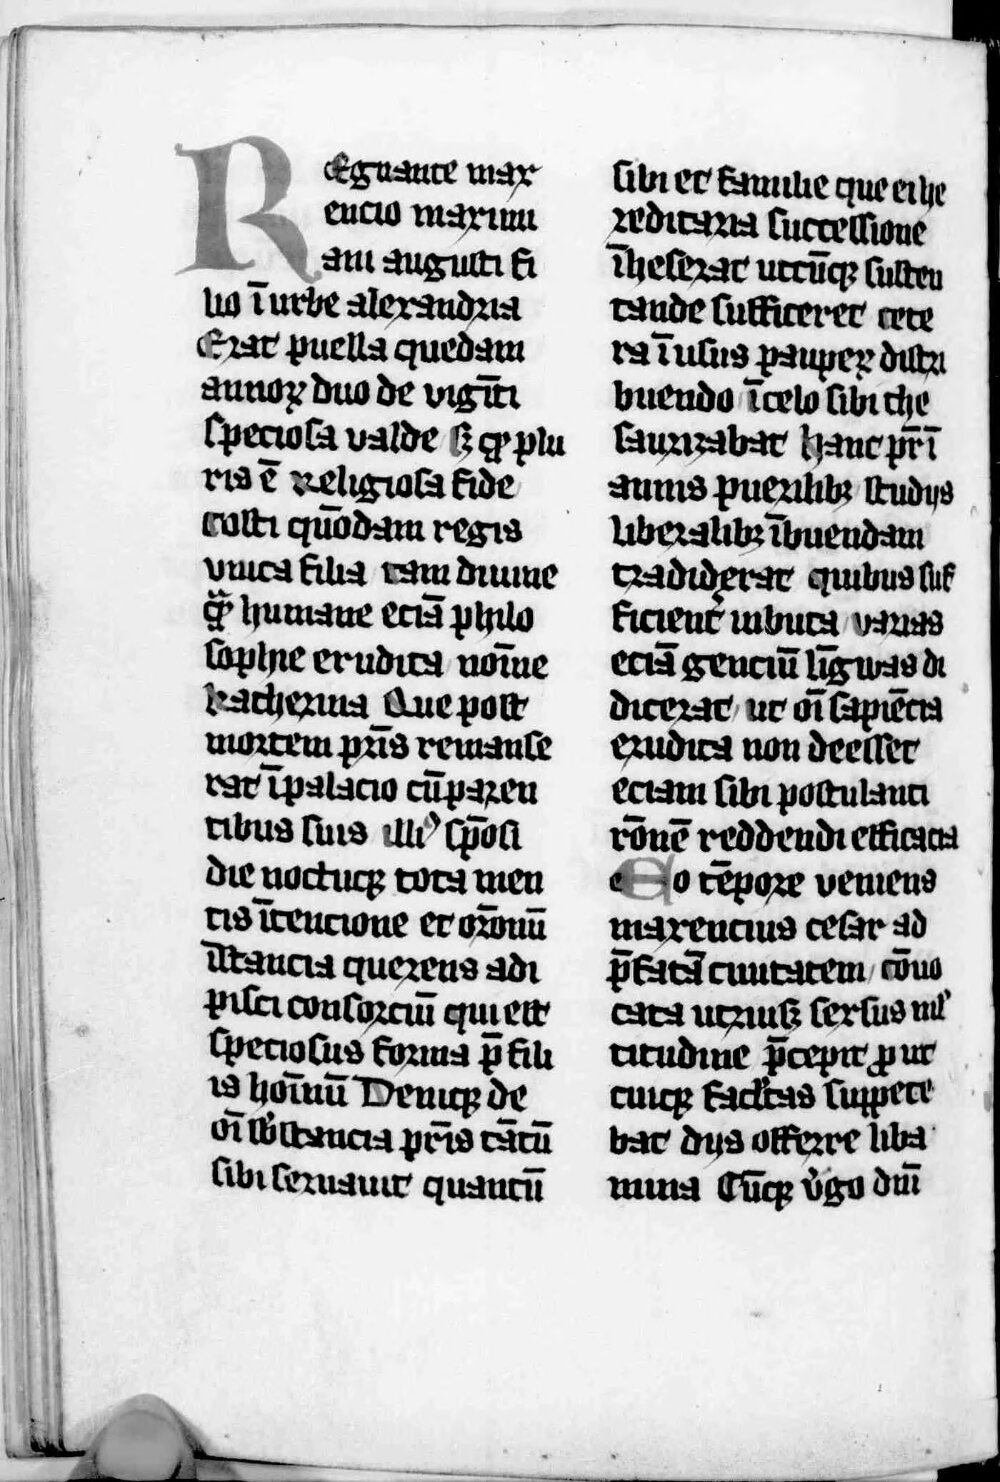 REgnante max
encio maximi
ani augusti fi
lio ī urbe alexandria
Erat puella quedam
annoꝝ duo de vigīti
speciosa valde sꝫ qͥ plu
ris ē religiosa fide
Costi quōdam regis
vnica filia tam diuine
qͣꝫ humane eciā philo
sophye erudita noīne
katherina Que post
mortem pris̄ remanse
rat ī palacio cū paren
tibus suis illiꝰ spōsi
die noctuqꝫ tota men
tis ītencione et orōnū
īstancia querens adi
pisci consorciū qui est
speciosus forma p̄ fili
is hoīnū Deniqꝫ de
oī sb̄stancia pris̄ tātū
sibi seruauit quantū
sibi et familie que ei he
reditaria successione
īheserat utcūqꝫ susten
tande sufficeret cete
ra ī usus paupeꝝ distri
buendo ī celo sibi the
saurizabat hanc pr̄ ī
annis puerilibꝫ studijs
liberalibꝫ ībuendam
tradiderat quibus suf
ficient᷑ inbuta varias
eciā genciū līgwas di
dicerat ut oī sapiēcia
erudita non deesset
eciam sibi postulanti
rōnē reddendi efficacia
Eo tēpore veniens
maxencius cesar ad
p̄fatā ciuitatem cōuo
cata utriusqꝫ sexsus ml̓
titudine p̄cepit prout
cuiqꝫ facl̓tas suppete
bat dijs offerre liba
mina Cūqꝫ v̓go dn̄i